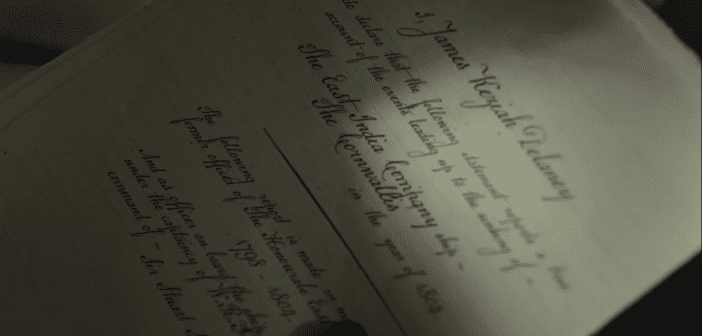 I, James Keziah Delaney
do declare that the following statement reports a true
account of the events leading up to the sinking of –
The East India Company ship –
The Cornwallis
in the year of 1804
The following report is made in my
former office of The Honourable East
1798 – 1804
And as officer on board the ship
under the captaincy of
command of – Sir Stuart